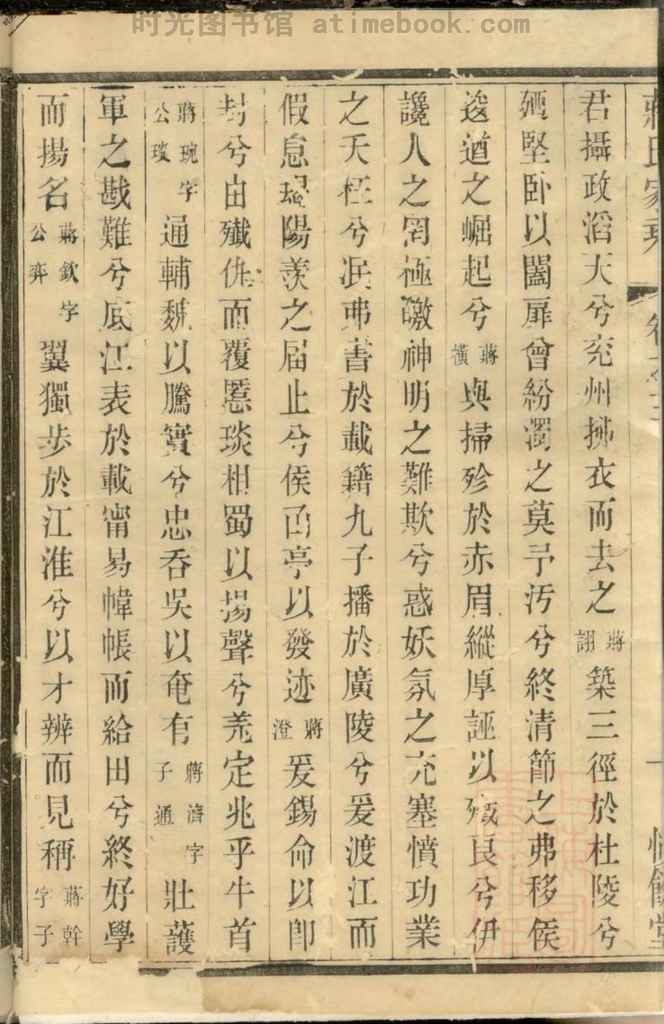 时光图书馆 - atimebook.com
蔣氏家乘 卷之
君攝政滔天兮兖州拂衣而去之蔣詡築三徑於杜陵兮
堅卧以闔扉曾紛濁之莫予污兮終清節之弗移侯
逡遒之崛起兮蔣橫與掃殄於赤眉縱厚誣以殲良兮伊
讒人之罔極曒神明之難欺兮惑妖氛之充塞憤功業
之夭枉兮冺弗書於載籍九子播於廣陵兮爰渡江而
假息陽羨之届止兮侯亭以發迹蔣澄爰錫命以卽
封兮由殲仇而覆慝琰相蜀以揚聲兮羌定兆乎牛首
蔣琬字公琰通輔魏以騰實兮忠吞吳以奄有蔣濟字子通壯護
軍之戡難兮底江表於載甯易幃帳而給田兮終好學
而揚名蔣欽字公奕翼獨步於江淮兮以才辨而見稱蔣幹字子